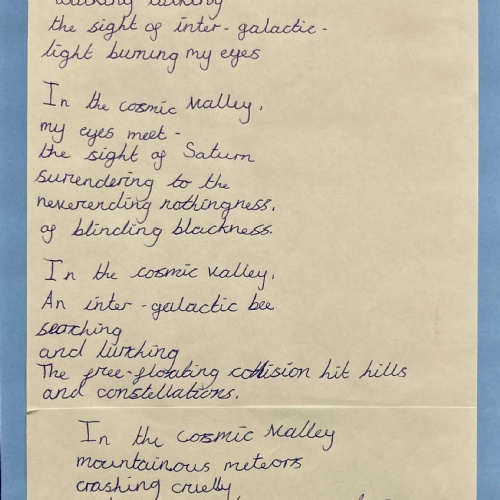 the sight of inter-galactic-
light burning my eyes
In the cosmic valley,
my eyes meet-
the sight of Saturn
surendering to the
neverending nothingness,
of blinding blackness.
In the cosmic valley,
An inter-galactic bee
searching
and lurching
The free-floating collision hit hills
and constellations.
In the cosmic valley
mountainous meteors
crashing cruelly